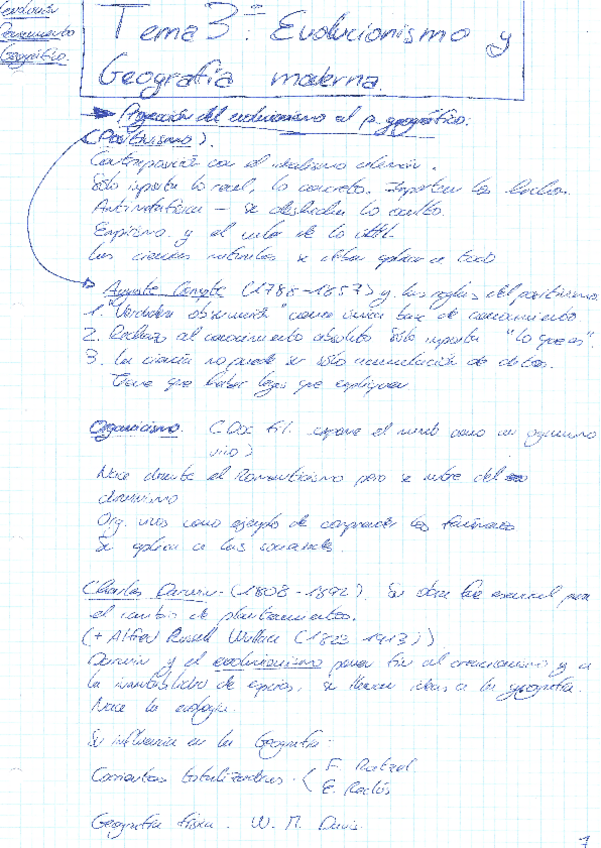 Evolución
Pensamiento
Geográfico.
Tema 3: Evolucionismo y
Geografía moderna.
del evolucionismo al p. geográfico.
(Positivismo).
Contraposición con el idealismo alemán.
Sólo importa lo real, lo concreto. Importan los hechos.
Antimetafísica - se deshecha lo oculto.
Empirismo y el valor de lo útil.
Las ciencias naturales se deben aplicar a todo
Auguste Compte (1788-1857) y las reglas del positivismo
1. "Verdadera observación" como única base de conocimiento
2. Rechazo al conocimiento absoluto. Sólo importa "lo que es".
3. La ciencia no puede ser sólo acumulación de datos.
Tiene que haber leyes que expliquen
Organicismo. (Doc Fil. expone el mundo como un organismo
vivo)
Nace durante el Romanticismo pero se nutre del
darwinismo
Org. vivos como ejemplo de comprender los fenómenos
Se aplica a las sociedades.
Charles Darwin. (1808-1892). Su obra fue esencial para
el cambio de planteamientos.
(+ Alfred Russell Wallace (1823-1913))
Darwin y el evolucionismo ponen fin al creacionismo y a
la inmutabilidad de especies, se llevan ideas a la geografía.
Nace la ecología.
Su influencia en la Geografía:
Corrientes totalizadoras. ( F. Ratzel.
E. Reclús
Geografía física. W. M. Davis.
1